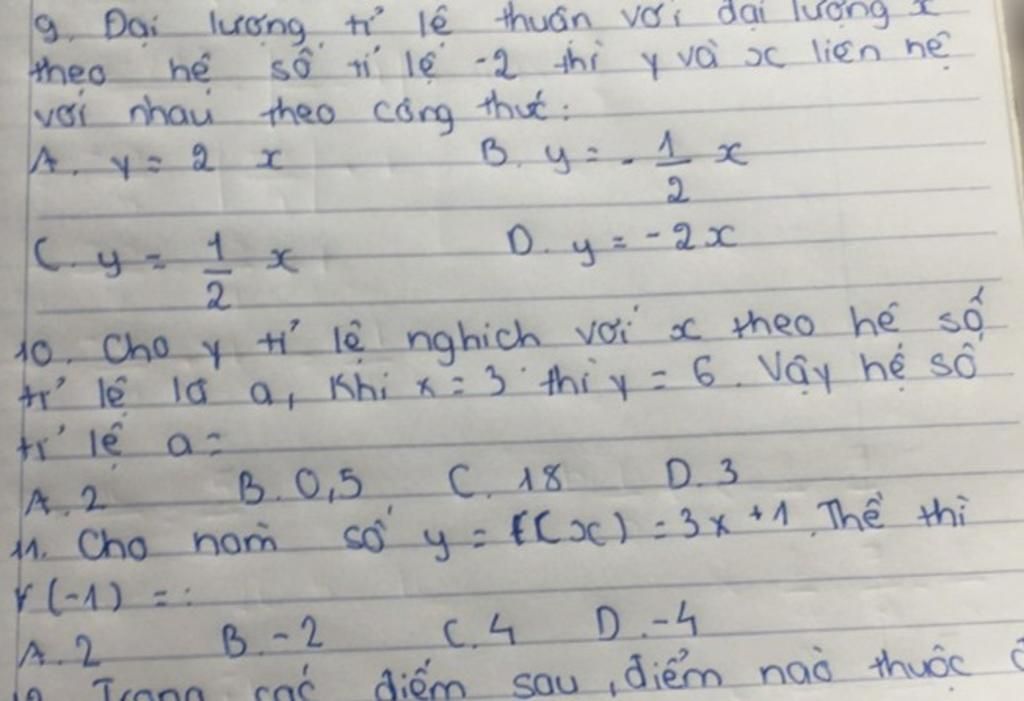 9. Đại lượng tỉ lệ thuân vơi đại lượng x
theo hệ số tỉ lệ -2 thì y và x liên hệ
vơi nhau theo công thưc:
A. y = 2 x B. y = - 1/2 x
C. y = 1/2 x D. y = -2x
10. Cho y tỉ lệ nghich vơi x theo hê số
tỉ lệ là a, Khi x = 3 thì y = 6. Vậy hệ số
tỉ lệ a =
A. 2 B. 0,5 C. 18 D. 3
11. Cho hàm số y = f(x) = 3x + 1. Thế thì
f(-1) = :
A. 2 B. -2 C. 4 D. -4
Trong các điểm sau, điểm nào thuộc